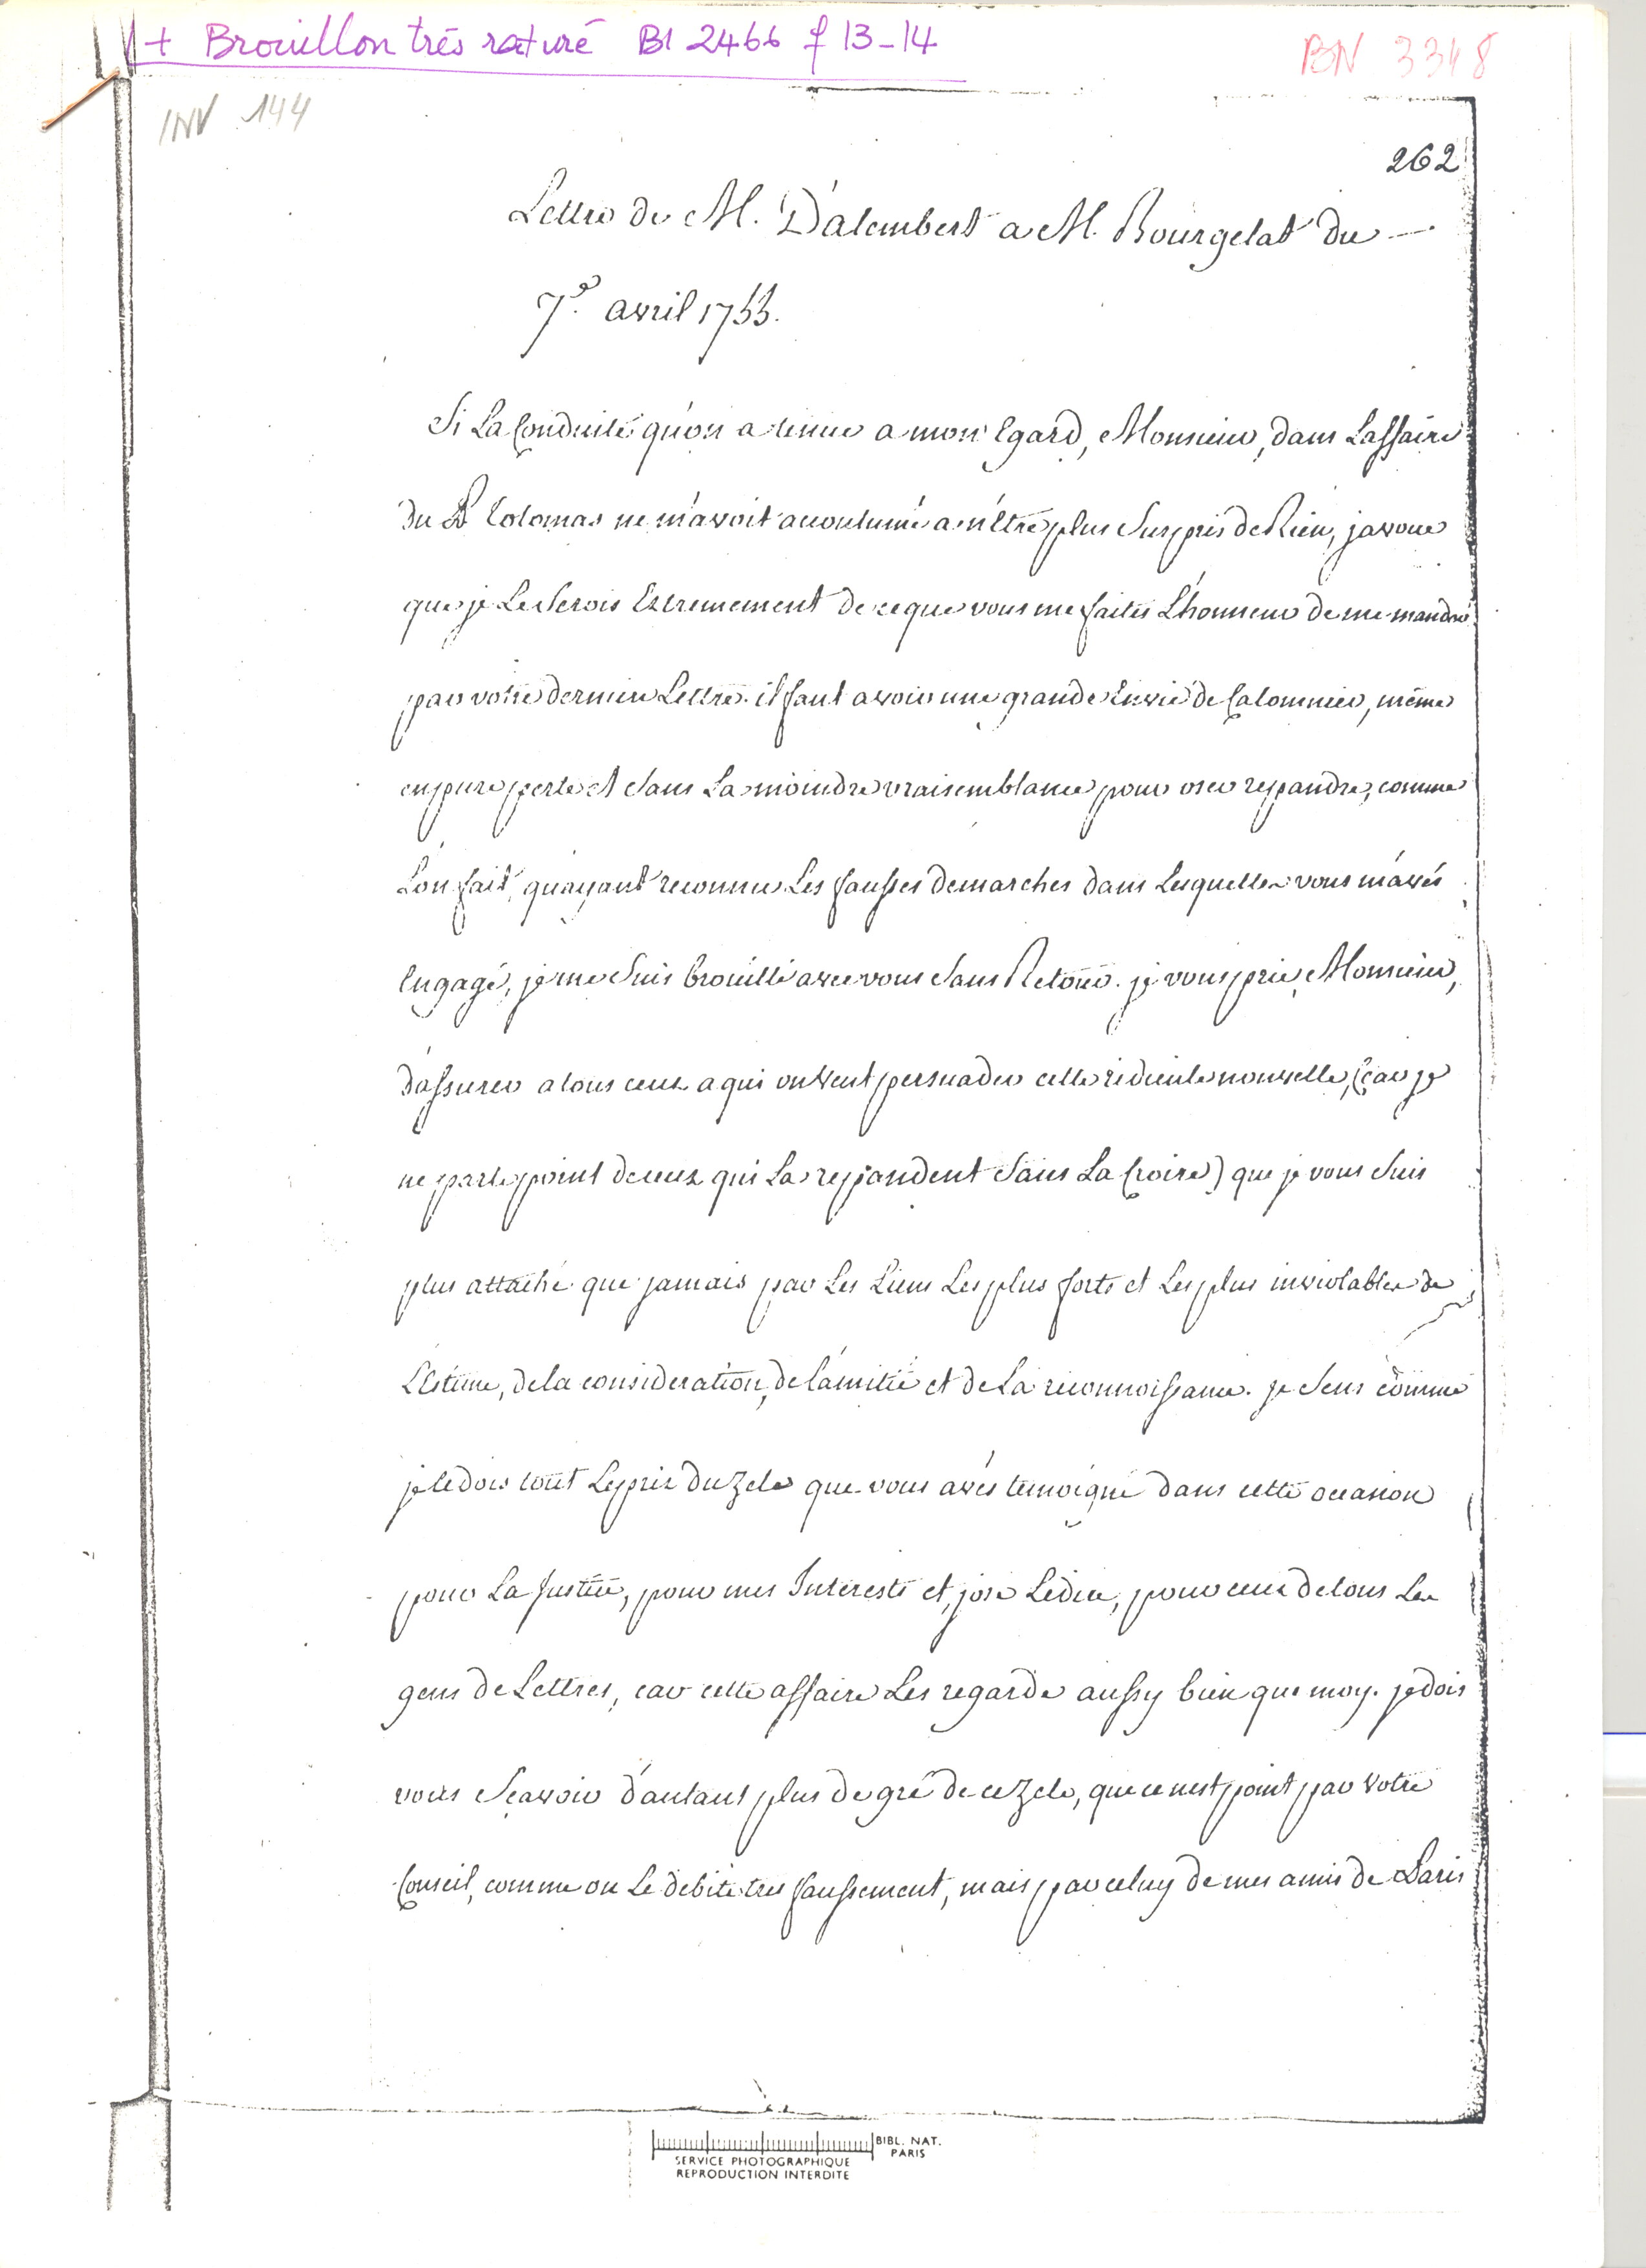 + Brouillon très raturé BI 2466 f 13-14
BN 3348
INV 144
262
Lettre de M. D'alembert a M. Bourgelat du
7e. avril 1755.
Si La Conduite qu'on a tenue a mon Egard, Monsieur, dans Laffaire
du P. Tolomas ne m'avoit acoutumé a n'Etre plus Surpris de Rien, javoue
que je Le Serois Extremement de ce que vous me faites L'honneur de me mander
par votre derniere Lettre. il faut avoir une grande Envie de Calomnier, même
en pure perte et Sans La moindre vraisemblance pour oser repandre, comme
L'on fait, qu'ayant reconnu Les fausses demarches dans Lesquelles vous m'avés
Engagé, je me Suis brouillé avec vous Sans Retour. je vous prie, Monsieur,
d'assurer a tous ceux a qui on veut persuader cette ridicule nouvelle, (car je
ne parle point de ceux qui La repandent Sans La Croire) que je vous Suis
plus attaché que jamais par Les Liens Les plus forts et Les plus inviolables de
L'Estime, de la consideration, de l'amitié et de La reconnoissance. je Sens comme
je le dois tout Le prix du Zele que vous avés temoigné dans cette occasion
pour La Justice, pour mes Interests et, jose Le dire, pour ceux de tous Les
gens de Lettres, car cette affaire Les regarde aussy bien que moy. je dois
vous Sçavoir d'autant plus de gré de ce Zele, que ce nest point par Votre
Conseil, comme on Le debite tres faussement, mais par celuy de mes amis de Paris
BIBL. NAT.
PARIS
SERVICE PHOTOGRAPHIQUE
REPRODUCTION INTERDITE